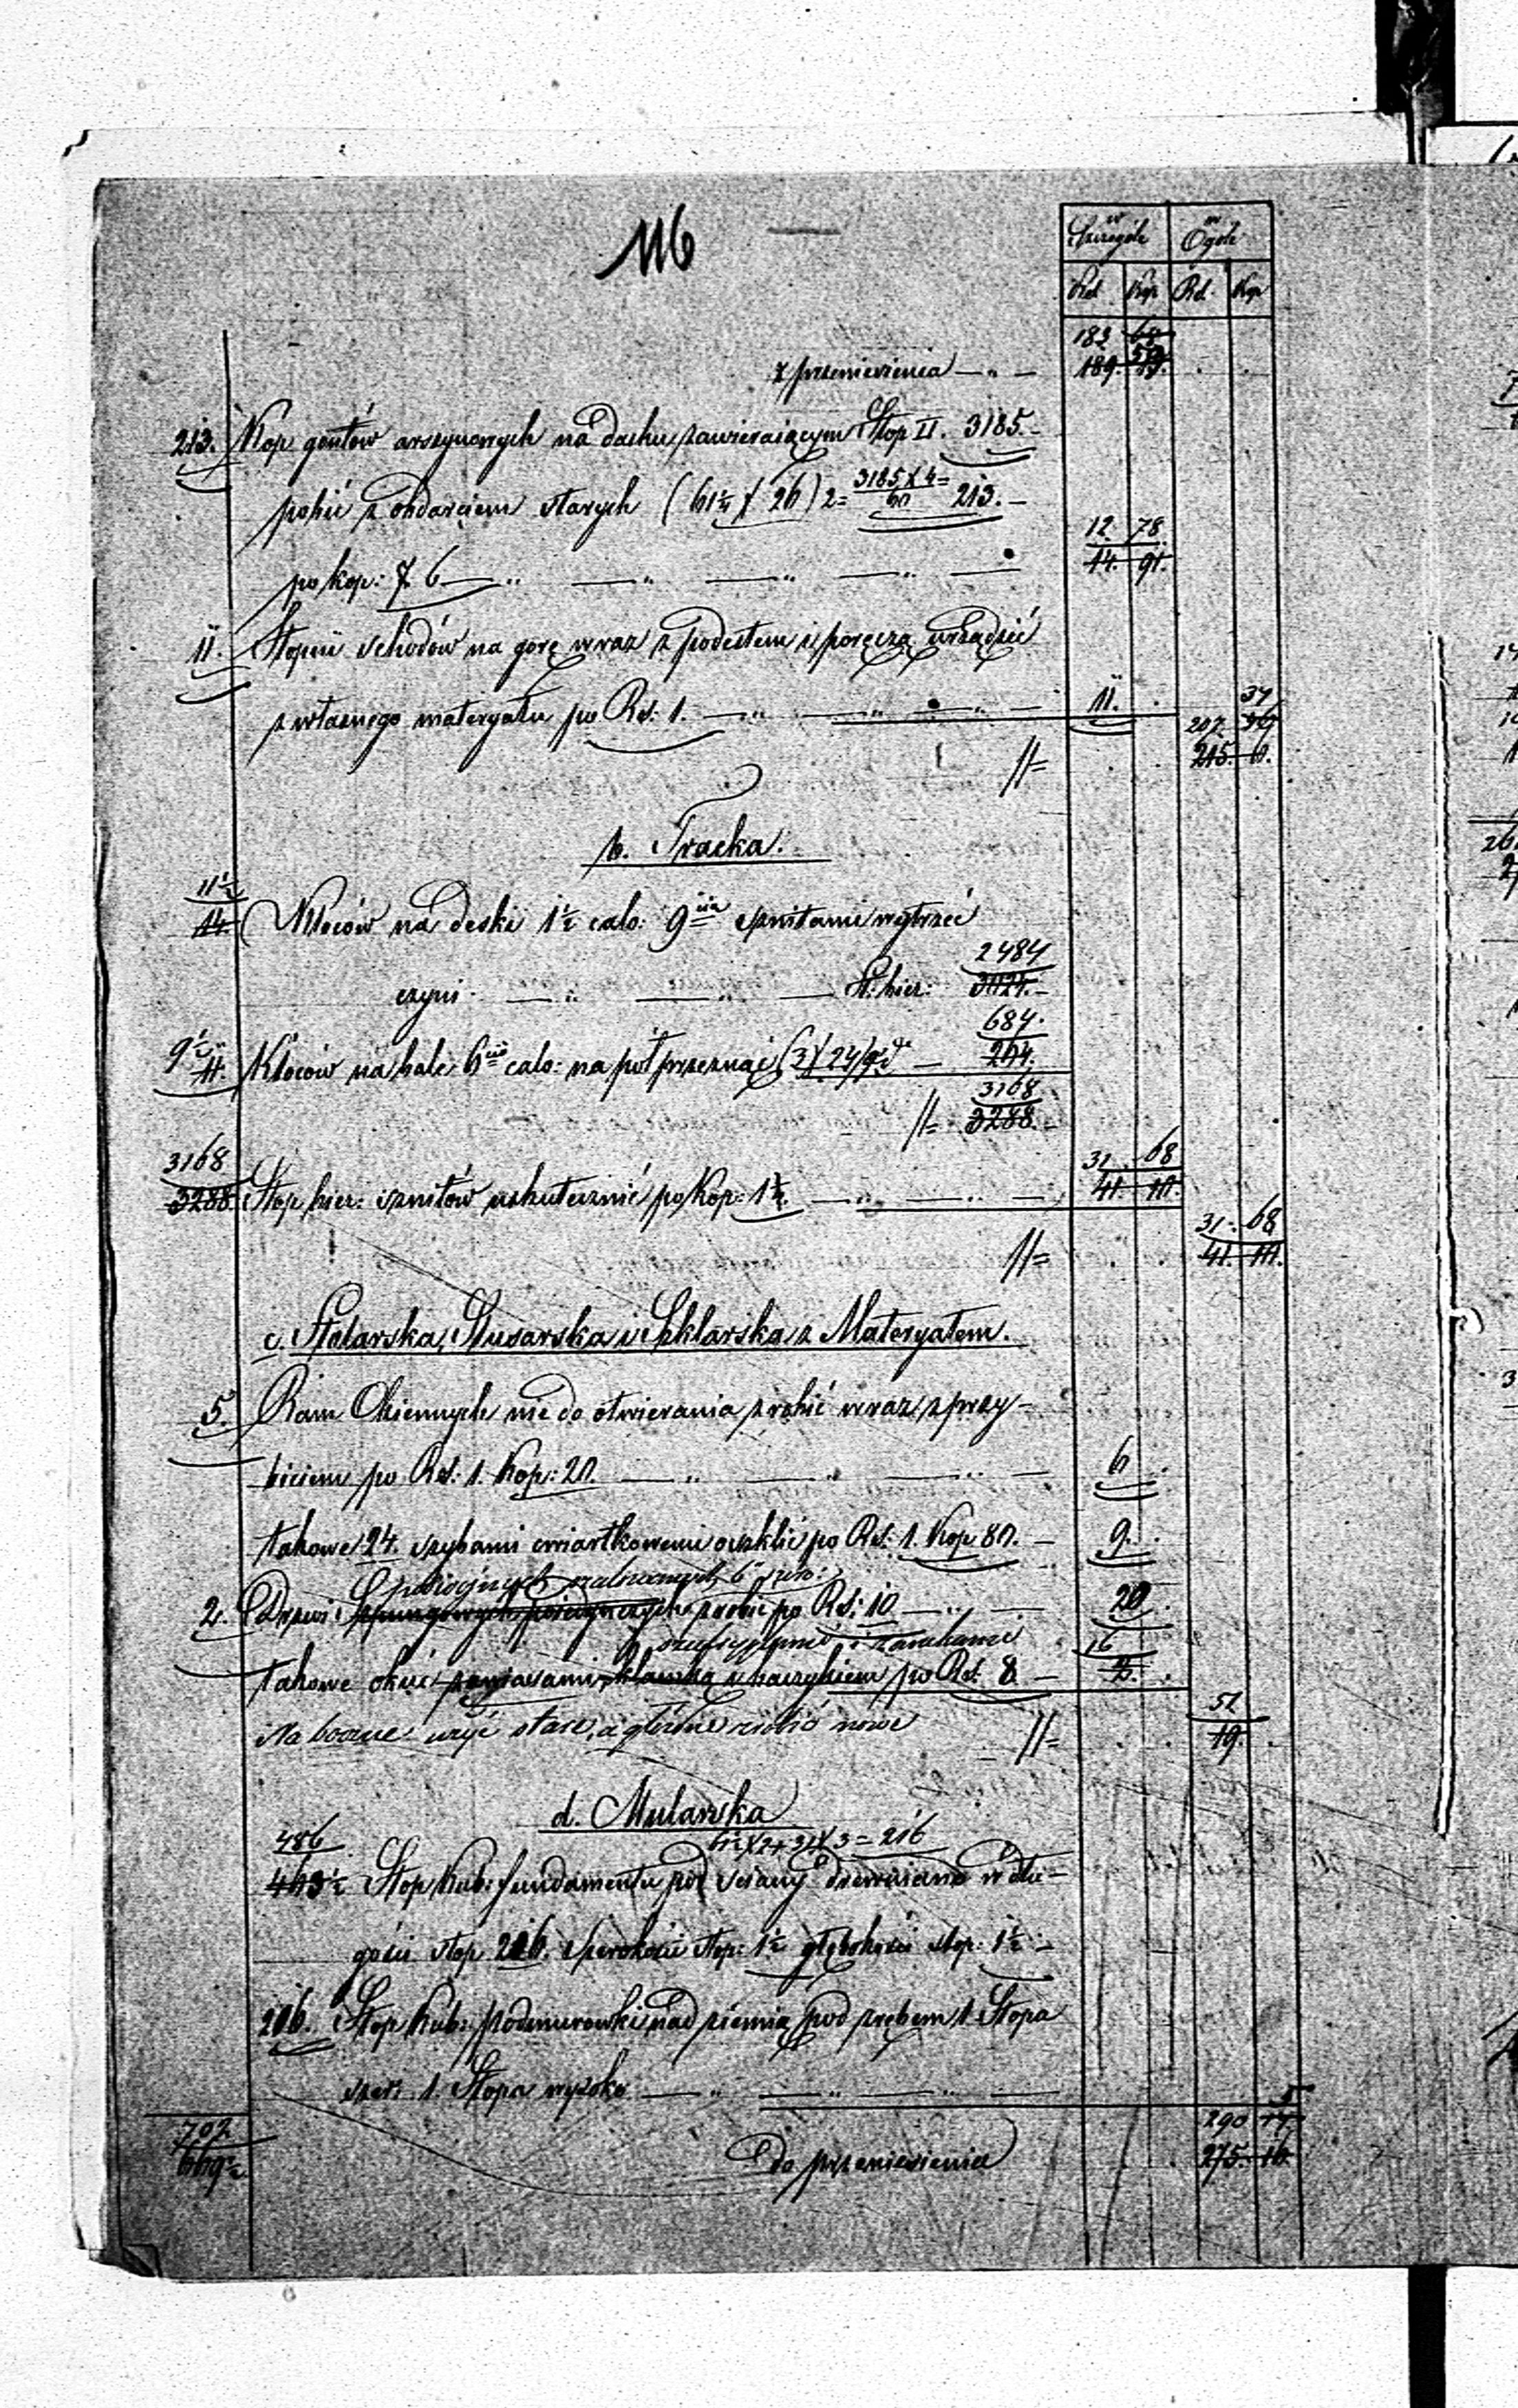 116
w Szczególe w Ogóle
Rs. Kop Rs. Kop
183 68
z przeniesienia 189. 19. 59
213. Kop gontów arszynowych na dachu zawierającym Stop □. 3185.
pobić z obdarciem starych (61¼ X 26) 2 = 3185 X 4 / 60 = 213.
12. 78.
po kop: 7. 6 14. 91.
11. Stopni schodów na górę wraz z podestem i poręczą urządzić
z własnego materyału po Rs: 1. 11. 207. 37
// = 215. 11.
b. Tracka.
11½
14. Kloców na deski 1½ calo: 9cia sznitami wytrzeć
2484
czyni St. bież: 3024.
684.
9½ 11. Kloców na bale 6cio calo: na pół przeznać (3 X 24) 264.
3168
// = 3288.
3168 31. 68
3288. Stop bież: sznitów uskutecznić po Kop: 1¼. 41. 10.
31. 68
// = 41. 10.
c. Stolarska, Slusarska i Szklarska z Materyałem.
5. Ram Okiennych nie do otwierania zrobić wraz z przy-
biciem po Rs: 1. Kop: 20. 6
takowe 24. szybami ćwiartkowemi oszklić po Rs: 1. Kop 80. 9.
2. Drzwi Szpungowych pojedynczych zrobić po Rs: 10 20
i zamkami 16
takowe okuć zawiasami klamką i haczykiem po Rs. 8
Na boczne użyć stare, a główne zrobić nowe // = 51
19.
d. Mularska
486 61½ X 2 + 31 X 3 = 216
463½ Stop Kub: fundamentu pod ściany drewniane w dłu-
gości stop 216. szerokości stop: 1½ głębokości stop: 1½
216. Stop Kub: podmurówki nad ziemią pod zrębem 1. Stopa
szer: 1. Stopa wysoko
702 290 5
669½ Do przeniesienia 275. 10.